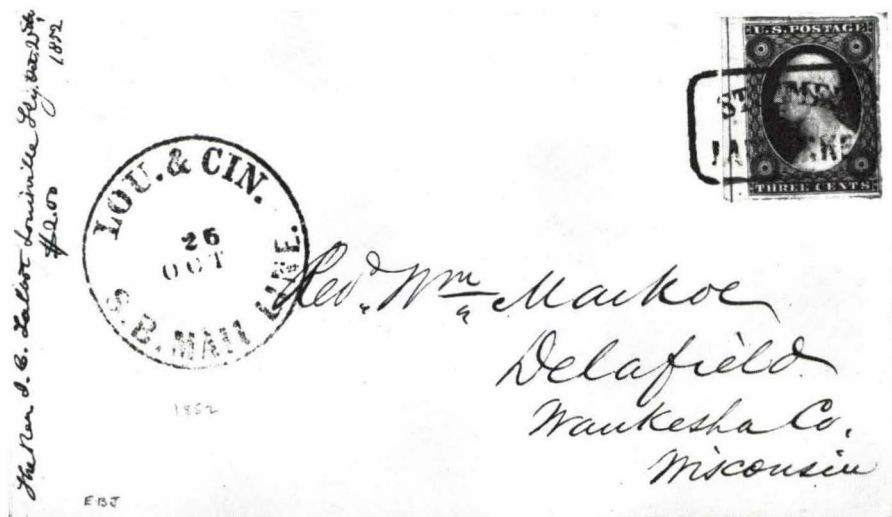 The Rev J. C. Talbot Louisville Ky. Oct 25th
1852
$2.00
U.S. POSTAGE
STEAMER
THREE CENTS
LOU. & CIN.
26
OCT
S.B. MAIL LINE.
Rev.d Wm Markoe
Delafield
Waukesha Co.
Wisconsin
1852
EBJ